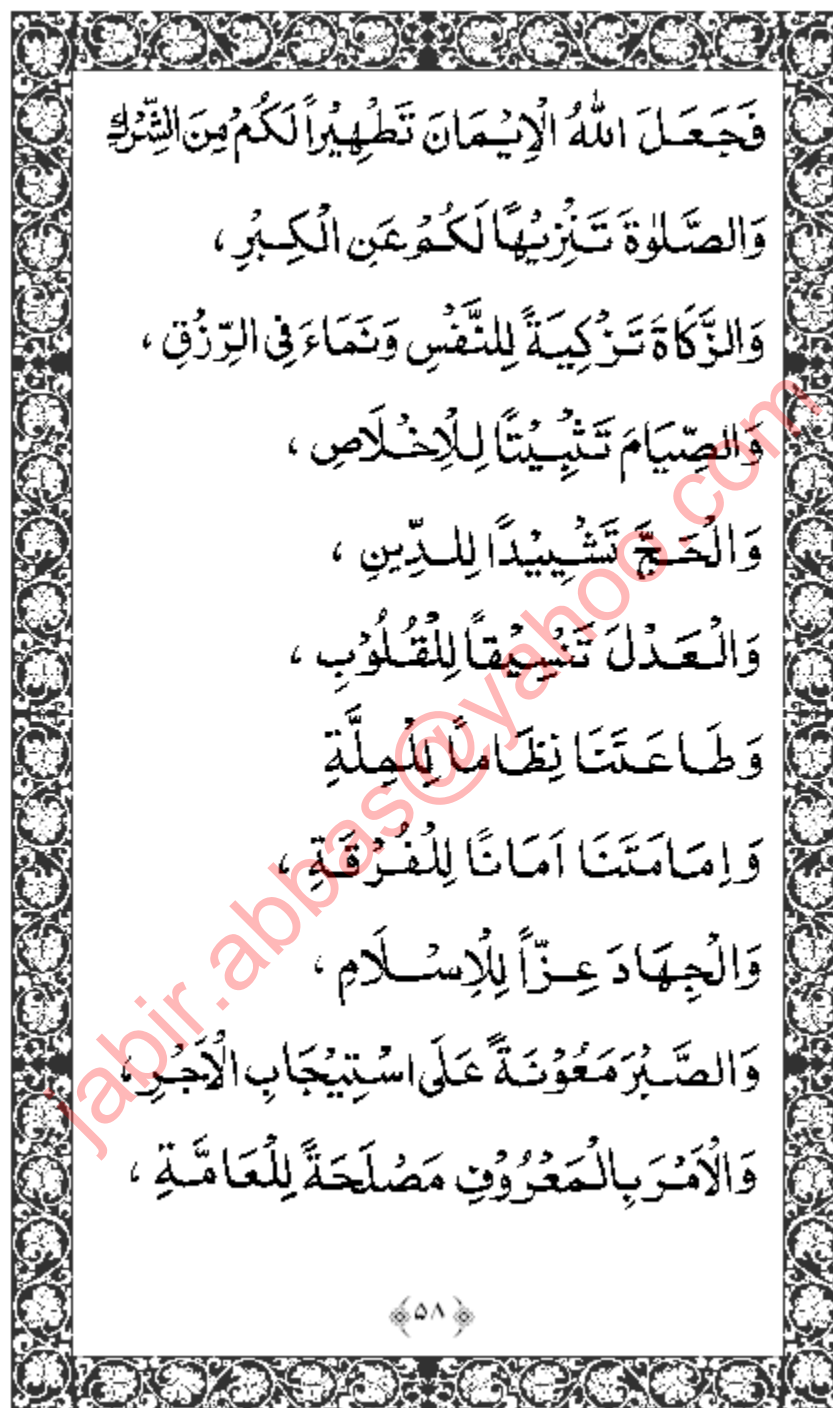 فَجَعَلَ اللهُ الْاِيْمَانَ تَطْهِيْراً لَكُمْ مِنَ الشِّرْكِ
وَالصَّلٰوةَ تَنْزِيْهًا لَكُمْ عَنِ الْكِبْرِ ،
وَالزَّكَاةَ تَزْكِيَةً لِلنَّفْسِ وَنَمَاءَ فِى الرِّزْقِ ،
وَالصِّيَامَ تَثْبِيْتًا لِلْاِخْلَاصِ ،
وَالْحَجَّ تَشْيِيْدًا لِلدِّينِ ،
وَالْعَدْلَ تَنْسِيْقاً لِلْقُلُوْبِ ،
وَطَاعَتَنَا نِظَاماً لِلْمِلَّةِ
وَاِمَامَتَنَا اَمَانًا لِلْفُرْقَةِ ،
وَالْجِهَادَ عِزّاً لِلْاِسْلَامِ ،
وَالصَّبْرَ مَعُوْنَةً عَلَى اسْتِيْجَابِ الْاَجْرِ ،
وَالْاَمْرَ بِالْمَعْرُوْفِ مَصْلَحَةً لِلْعَامَّةِ ،
﴿۵۸﴾
jabir.abbas@yahoo.com